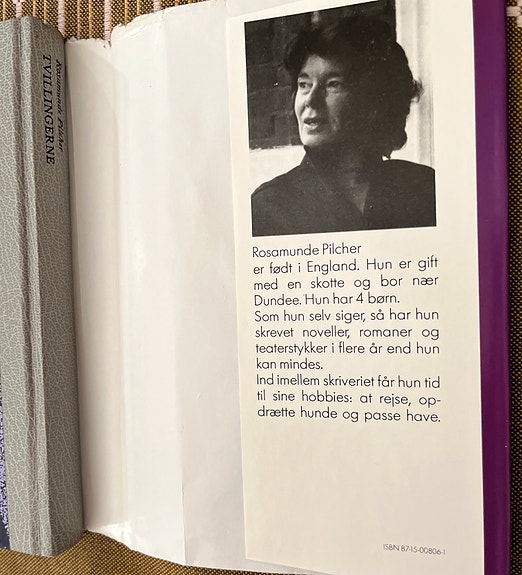 Rosamunde Pilcher
TVILLINGERNE
Rosamunde Pilcher
er født i England. Hun er gift
med en skotte og bor nær
Dundee. Hun har 4 børn.
Som hun selv siger, så har hun
skrevet noveller, romaner og
teaterstykker i flere år end hun
kan mindes.
Ind imellem skriveriet får hun tid
til sine hobbies: at rejse, op-
drætte hunde og passe have.
ISBN 87-15-00806-1